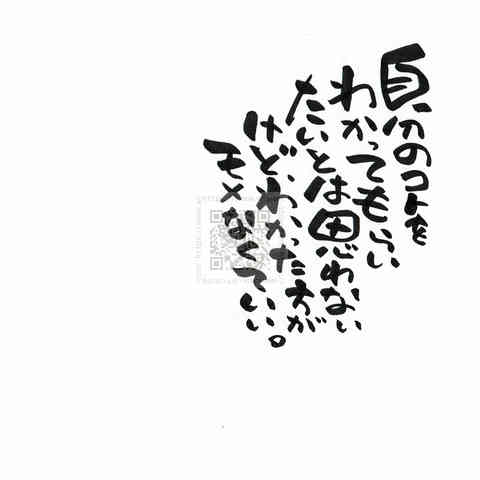 自分のコトを
わかってもらい
たいとは思わない
けど、わかった方が
モメなくていい。